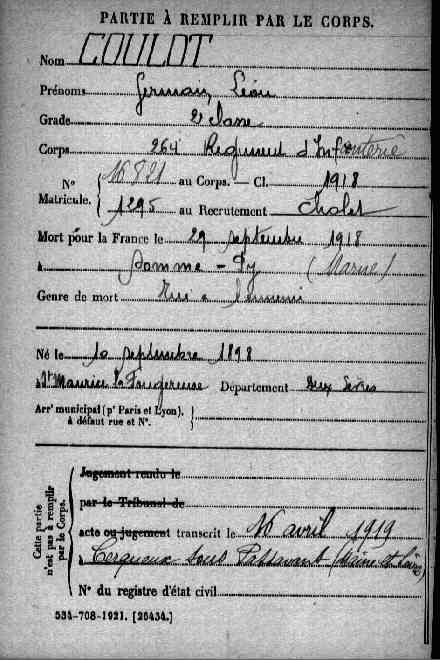 PARTIE À REMPLIR PAR LE CORPS.
Nom COULOT
Prénoms Germain, Léon
Grade 2e classe
Corps 264 Régiment d'Infanterie
N° Matricule. { 16821 au Corps. — Cl. 1918
1295 au Recrutement Cholet
Mort pour la France le 29 septembre 1918
à Somme-Py (Marne)
Genre de mort Tué à l'ennemi
Né le 10 septembre 1898
à St Maurice la Fougereuse Département Deux Sèvres
Arr¹ municipal (p¹ Paris et Lyon), à défaut rue et N°. }
Cette partie n'est pas à remplir par le Corps.
Jugement rendu le
par le Tribunal de
acte ou jugement transcrit le 16 avril 1919
à Cerqueux sous Passavant (Maine et Loire)
N° du registre d'état civil
534-708-1921. [26434.]